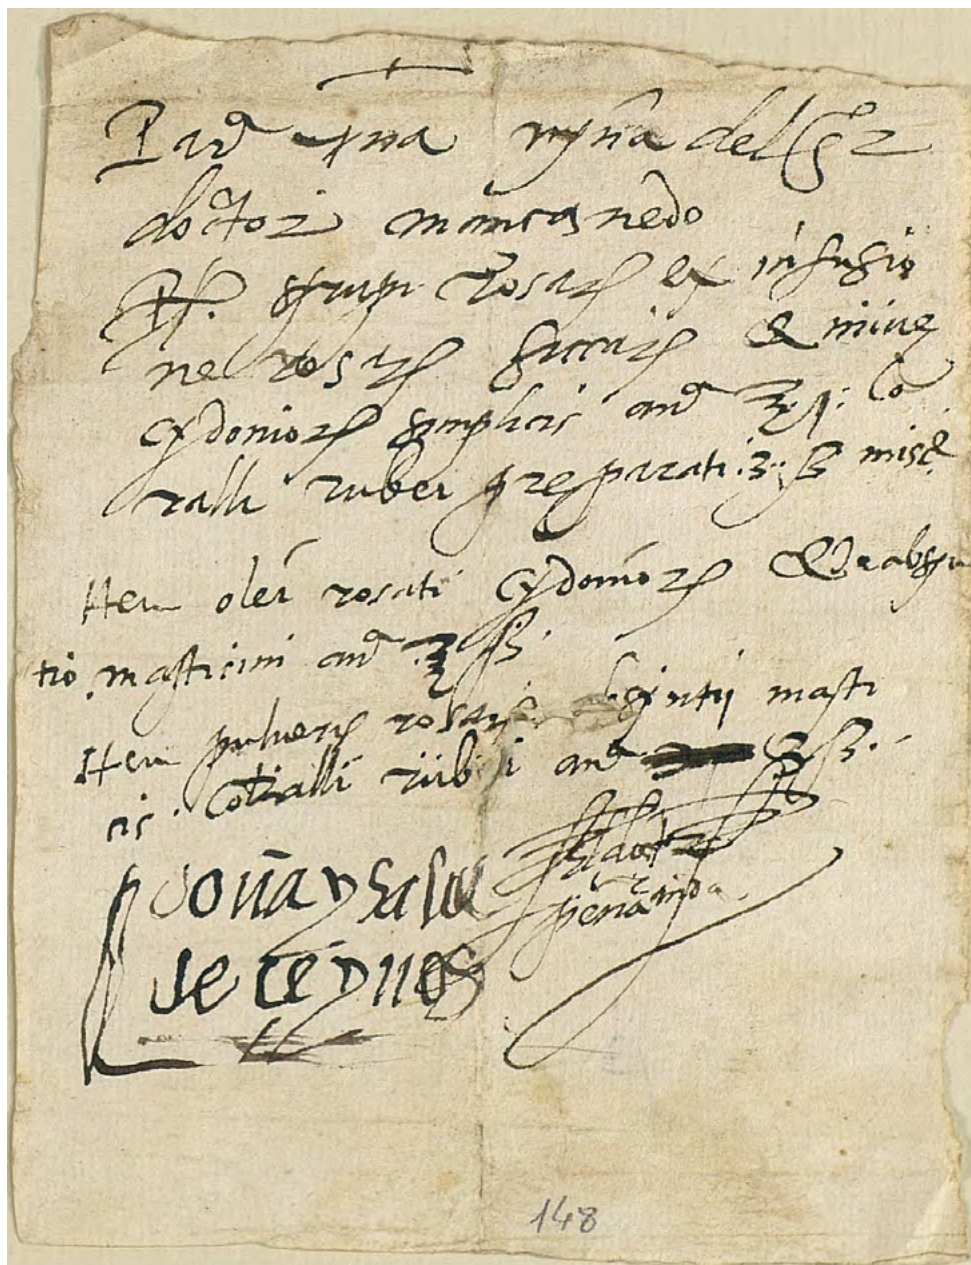 Para una nyña del Sr
doctor mançanedo
Rx. sirupi rosarum ex infusio
ne rosarum siccarum & mive
cydoniorum simplicis ana ℥.j. co
ralli rubei preparati .ʒ.ß misce
Item olei rosati cydoniorum & absin
tio masticini ana ℥ ß.
Item pulveris rosarum absintii masti
cis coralli rubei ana ʒ ß.
doña ysabel
de
148